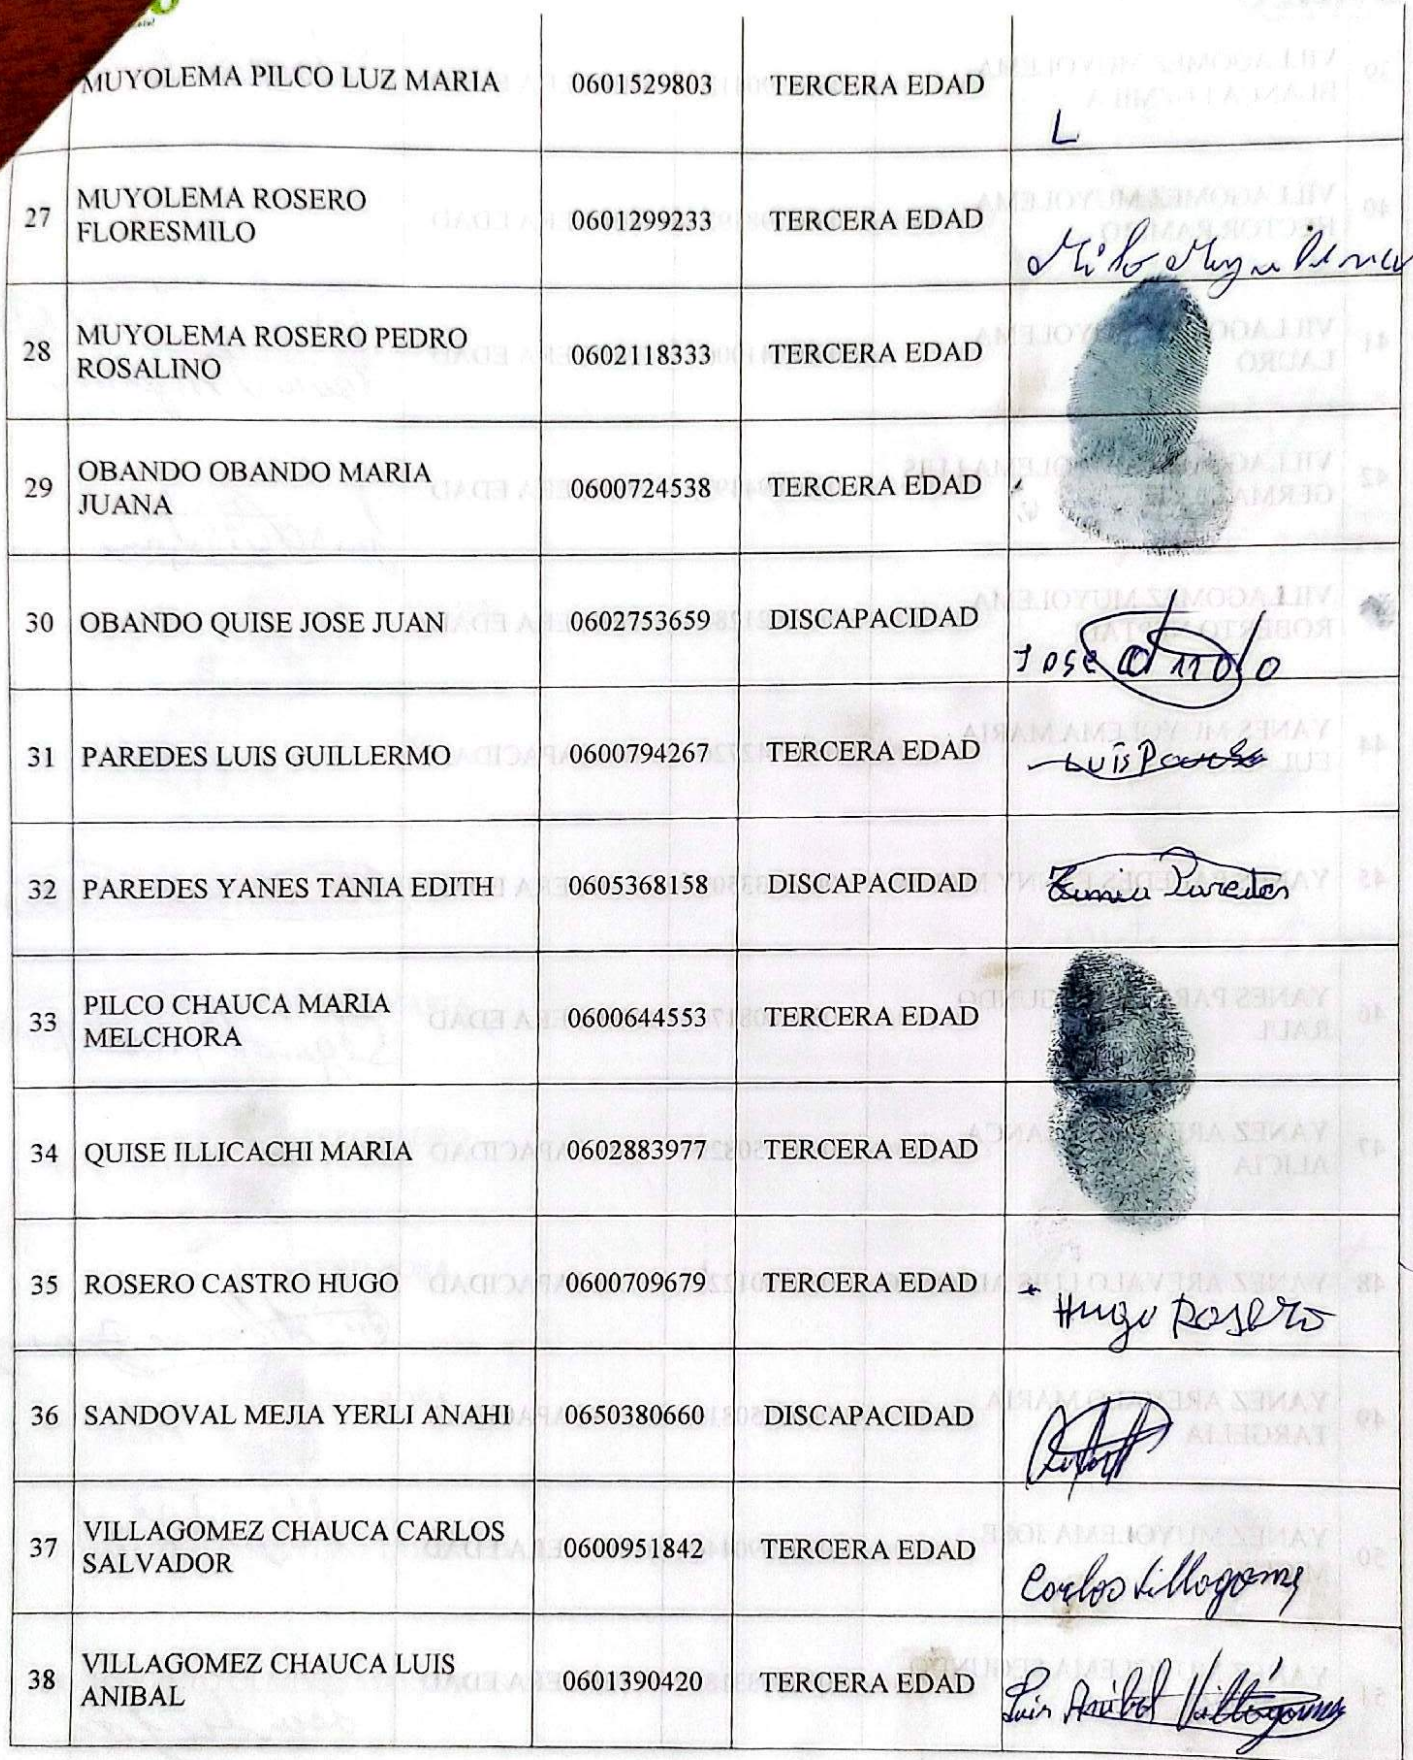 MUYOLEMA PILCO LUZ MARIA 0601529803 TERCERA EDAD
L
27 MUYOLEMA ROSERO FLORESMILO 0601299233 TERCERA EDAD
28 MUYOLEMA ROSERO PEDRO ROSALINO 0602118333 TERCERA EDAD
29 OBANDO OBANDO MARIA JUANA 0600724538 TERCERA EDAD
30 OBANDO QUISE JOSE JUAN 0602753659 DISCAPACIDAD
Jose
31 PAREDES LUIS GUILLERMO 0600794267 TERCERA EDAD
Luis
32 PAREDES YANES TANIA EDITH 0605368158 DISCAPACIDAD
Paredes
33 PILCO CHAUCA MARIA MELCHORA 0600644553 TERCERA EDAD
34 QUISE ILLICACHI MARIA 0602883977 TERCERA EDAD
35 ROSERO CASTRO HUGO 0600709679 TERCERA EDAD
Hugo Rosero
36 SANDOVAL MEJIA YERLI ANAHI 0650380660 DISCAPACIDAD
37 VILLAGOMEZ CHAUCA CARLOS SALVADOR 0600951842 TERCERA EDAD
Carlos Villagomez
38 VILLAGOMEZ CHAUCA LUIS ANIBAL 0601390420 TERCERA EDAD
Luis Anibal Villagomez